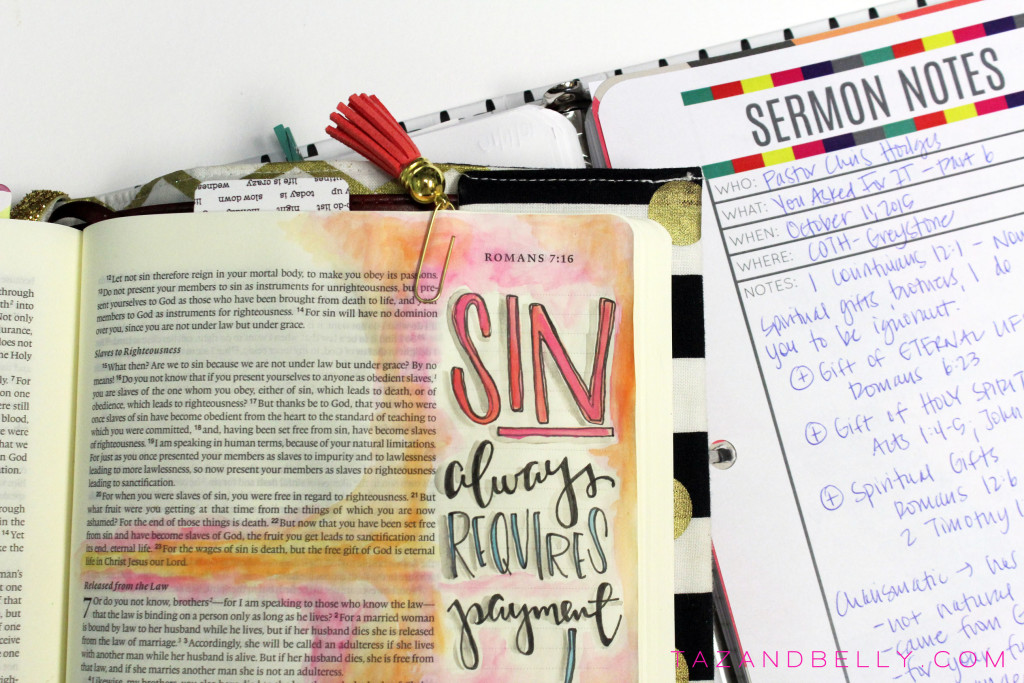 through
into
Not only
durance,
does not
the Holy
ly. 7 For
on one
ere still
blood,
e were
hat we
n God
ation.
rough
in the
14 Yet
ke the
man's
at one
of that
n, but
of one
ceive
e one
life is crazy
wednes
today is
up
slow down
to-do list
night
ROMANS 7:16
12Let not sin therefore reign in your mortal body, to make you obey its passions.
13Do not present your members to sin as instruments for unrighteousness, but pre-
sent yourselves to God as those who have been brought from death to life, and your
members to God as instruments for righteousness. 14For sin will have no dominion
over you, since you are not under law but under grace.
Slaves to Righteousness
15What then? Are we to sin because we are not under law but under grace? By no
means! 16Do you not know that if you present yourselves to anyone as obedient slaves,
you are slaves of the one whom you obey, either of sin, which leads to death, or of
obedience, which leads to righteousness? 17But thanks be to God, that you who were
once slaves of sin have become obedient from the heart to the standard of teaching to
which you were committed, 18and, having been set free from sin, have become slaves
of righteousness. 19I am speaking in human terms, because of your natural limitations.
For just as you once presented your members as slaves to impurity and to lawlessness
leading to more lawlessness, so now present your members as slaves to righteousness
leading to sanctification.
20For when you were slaves of sin, you were free in regard to righteousness. 21But
what fruit were you getting at that time from the things of which you are now
ashamed? For the end of those things is death. 22But now that you have been set free
from sin and have become slaves of God, the fruit you get leads to sanctification and
its end, eternal life. 23For the wages of sin is death, but the free gift of God is eternal
life in Christ Jesus our Lord.
Released from the Law
7 Or do you not know, brothers—for I am speaking to those who know the law—
that the law is binding on a person only as long as he lives? 2For a married woman
is bound by law to her husband while he lives, but if her husband dies she is released
from the law of marriage. 3Accordingly, she will be called an adulteress if she lives
with another man while her husband is alive. But if her husband dies, she is free from
that law, and if she marries another man she is not an adulteress.
SIN
always
REQUIRES
payment
SERMON NOTES
WHO: Pastor Chris Hodges
WHAT: You Asked For IT - Part 6
WHEN: October 11, 2015
WHERE: COTH - Greystone
NOTES: 1 Corinthians 12:1 - Now
spiritual gifts brothers, I do
you to be ignorant.
+ Gift of ETERNAL LIFE
Romans 6:23
+ Gift of HOLY SPIRIT
Acts 1:4-5, John
+ Spiritual Gifts
Romans 12:6
2 Timothy 1
Charismatic → has
- not natural
- came from G
- for your fu
TAZANDBELLY.COM